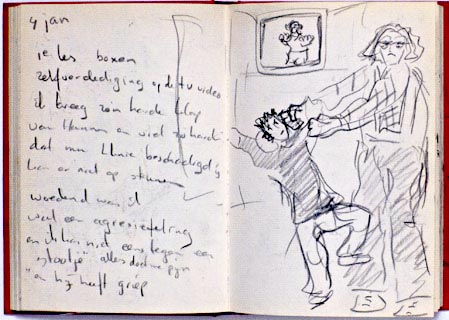 4 jan
1e les boxen
zelfverdediging op de tv video
ik kreeg zo'n harde klap
van en viel zo hard
dat mn knie beschadigd is
kan er niet op steunen
woedend was ik
wat een
en ik kan niet eens tegen een
"stootje" alles doet me pijn
en hij heeft griep